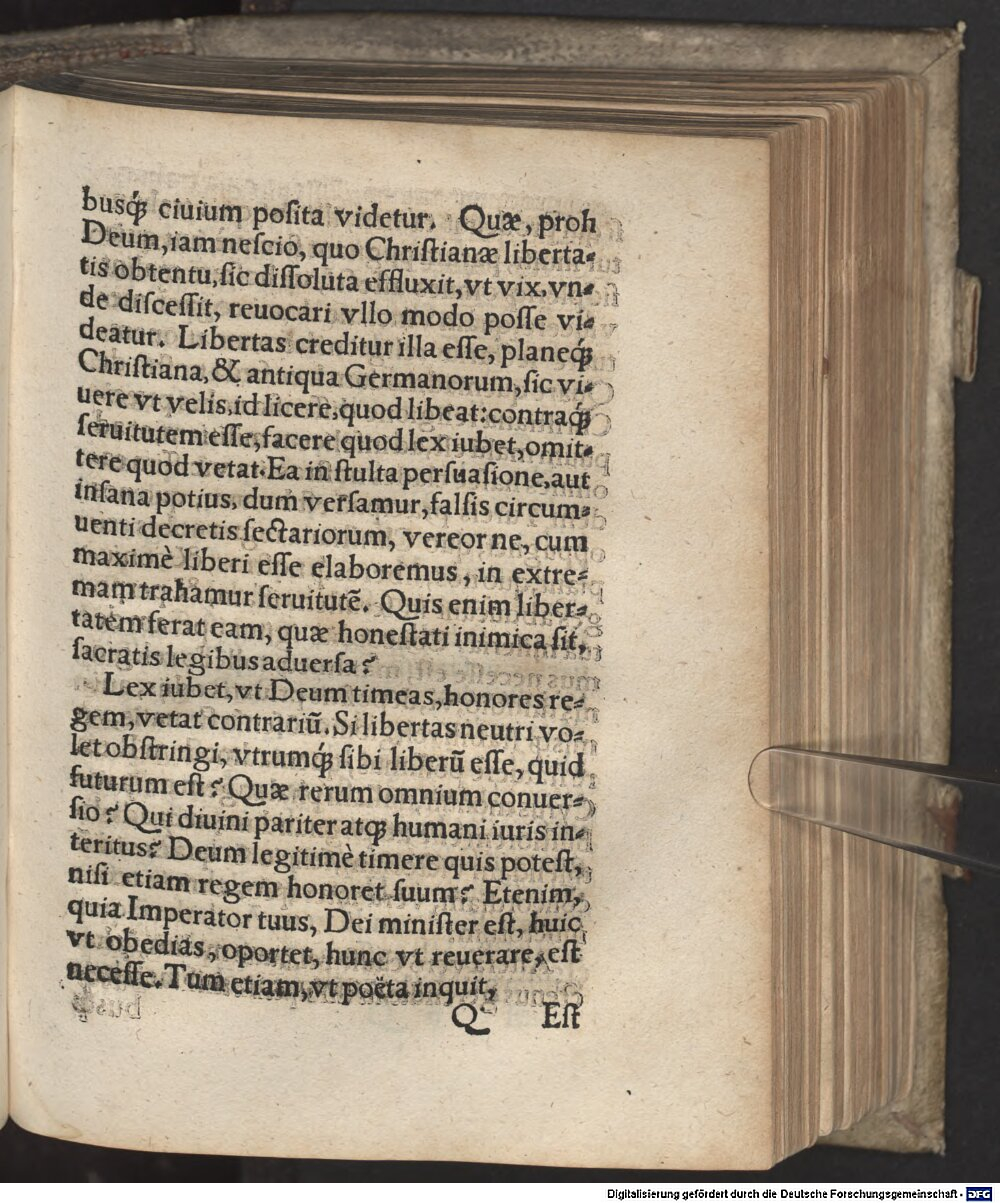 busq́ꝫ ciuium poſita videtur. Quæ, proh
Deum, iam neſcio, quo Chriſtianæ liberta⸗
tis obtentu, ſic diſſoluta effluxit, vt vix, vn⸗
de diſceſſit, reuocari vllo modo poſſe vi⸗
deatur. Libertas creditur illa eſſe, planeq́ꝫ
Chriſtiana, & antiqua Germanorum, ſic vi⸗
uere vt velis, id licere, quod libeat: contraq́ꝫ
ſeruitutem eſſe, facere quod lex iubet, omit⸗
tere quod vetat. Ea in ſtulta perſuaſione, aut
inſana potius, dum verſamur, falſis circum⸗
uenti decretis ſectariorum, vereor ne, cum
maximè liberi eſſe elaboremus, in extre⸗
mam trahamur ſeruitutẽ. Quis enim liber⸗
tatem ferat eam, quæ honeſtati inimica ſit,
ſacratis legibus aduerſa?
Lex iubet, vt Deum timeas, honores re⸗
gem, vetat contrariũ. Si libertas neutri vo⸗
let obſtringi, vtrumq́ꝫ ſibi liberũ eſſe, quid
futurum eſt? Quæ rerum omnium conuer⸗
ſio? Qui diuini pariter atqꝫ humani iuris in⸗
teritus? Deum legitimè timere quis poteſt,
niſi etiam regem honoret ſuum? Etenim,
quia Imperator tuus, Dei miniſter eſt, huic
vt obedias, oportet, hunc vt reuerare, eſt
neceſſe. Tum etiam, vt poëta inquit,
Q Eſt
Digitalisierung gefördert durch die Deutsche Forschungsgemeinschaft - DFG